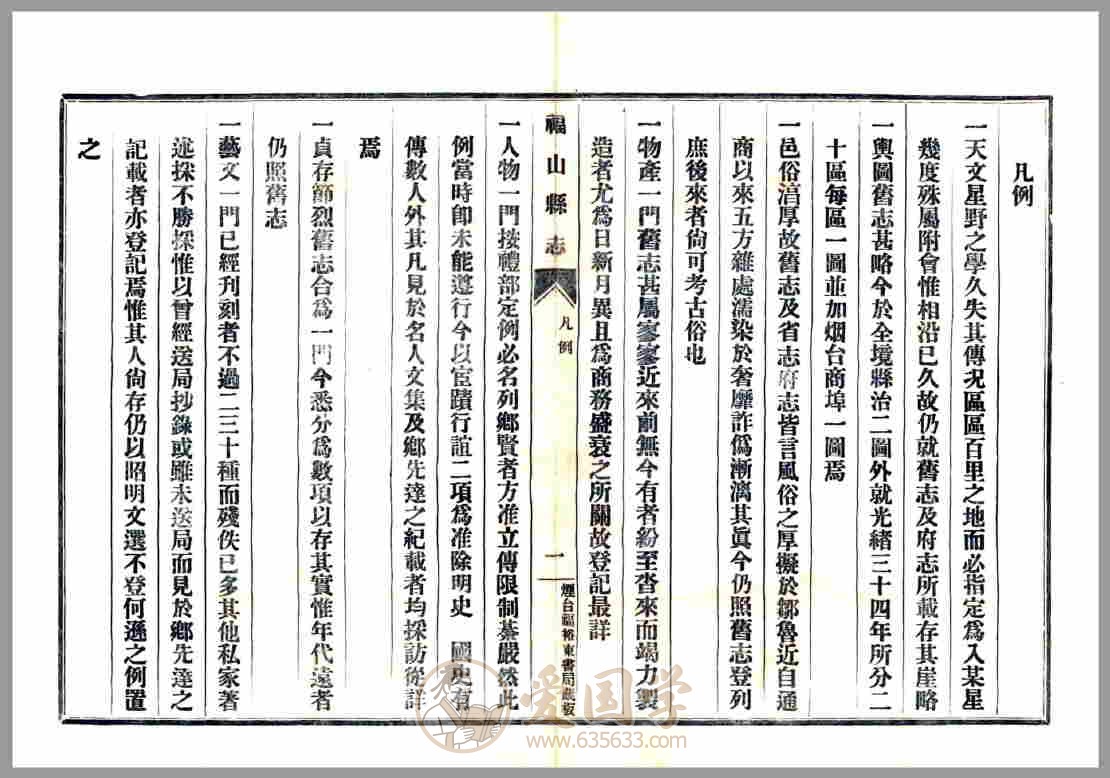 凡例
一天文星野之學久失其傳況區區百里之地而必指定爲入某星
幾度殊屬附會惟相沿已久故仍就舊志及府志所載存其崖略
一輿圖舊志甚略今於全境縣治二圖外就光緒三十四年所分二
十區每區一圖並加烟台商埠一圖焉
一邑俗湻厚故舊志及省志府志皆言風俗之厚擬於鄒魯近自通
商以來五方雜處濡染於奢靡詐僞漸漓其眞今仍照舊志登列
庶後來者尙可考古俗也
一物產一門舊志甚屬寥寥近來前無今有者紛至沓來而竭力製
造者尤爲日新月異且爲商務盛衰之所關故登記最詳
福山縣志
凡例
一
煙台福裕東書局藏版
一人物一門按禮部定例必名列鄕賢者方准立傳限制綦嚴然此
例當時卽未能遵行今以宦蹟行誼二項爲准除明史 國史有
傳數人外其凡見於名人文集及鄕先達之紀載者均採訪從詳
焉
一貞存節烈舊志合爲一門今悉分爲數項以存其實惟年代遠者
仍照舊志
一藝文一門已經刊刻者不過二三十種而殘佚已多其他私家著
述採不勝採惟以曾經送局抄錄或雖未送局而見於鄕先達之
記載者亦登記焉惟其人尙存仍以昭明文選不登何遜之例置
之
爱国学
www.635633.com